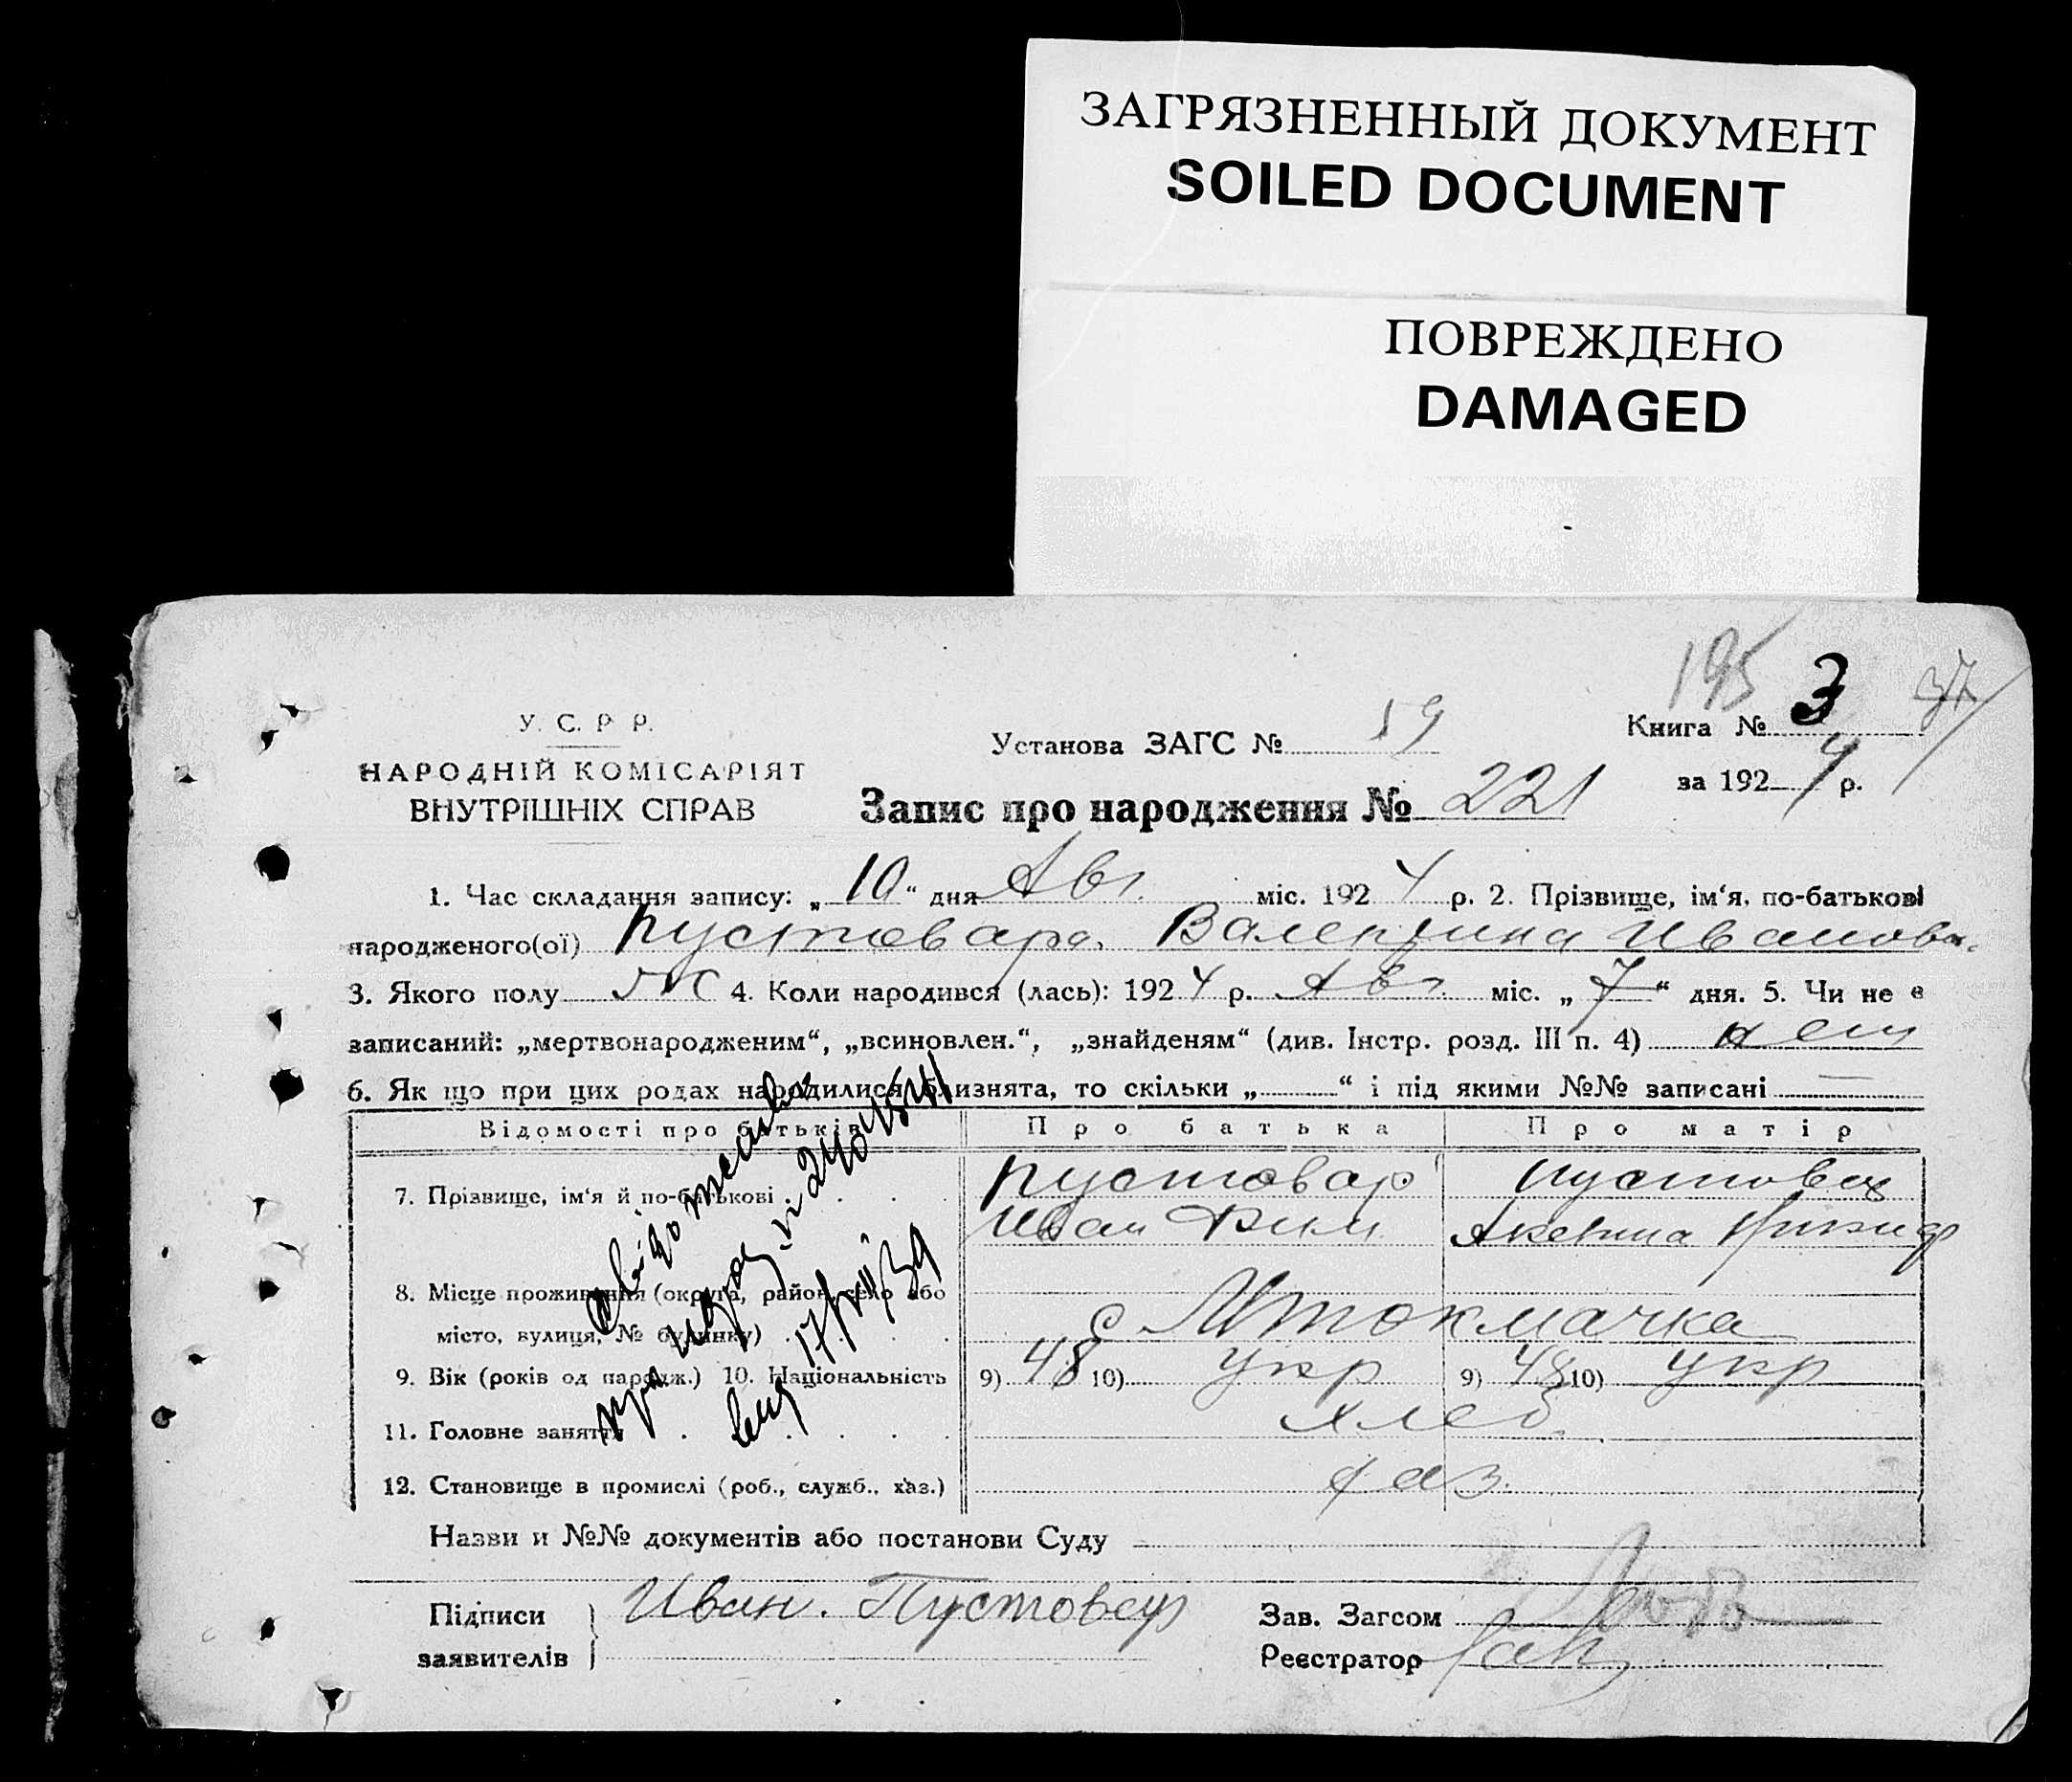 ЗАГРЯЗНЕННЫЙ ДОКУМЕНТ
SOILED DOCUMENT
ПОВРЕЖДЕНО
DAMAGED
195 3
У. С. Р Р.
НАРОДНІЙ КОМІСАРІЯТ
ВНУТРІШНІХ СПРАВ
Установа ЗАГС № 59
Книга №
за 1924 р.
Запис про народження № 221
1. Час складання запису: „10“ дня Авг. міс. 1924 р. 2. Прізвище, ім‘я, по-батькові
народженого(ої) Пустовар. Валентина Иванов.
3. Якого полу ж 4. Коли народився (лась): 1924 р. Авг. міс. „7“ дня. 5. Чи не є
записаний: „мертвонародженим“, „всиновлен.“, „знайденям“ (див. Інстр. розд. III п. 4) нет
6. Як що при цих родах народилися близнята, то скільки „ “ і під якими №№ записані —
Відомості про батьків Про батька Про матір
7. Прізвище, ім‘я й по-батькові Пустовар Пустовец
Иван Аксенна
8. Місце проживання (округа, район, село або
місто, вулиця, № будинку) с Мтокмачка
9. Вік (років од народж.) 10. Національність 9) 48 10) укр 9) 48 10) укр
11. Головне заняття хлеб
12. Становище в промислі (роб., служб., хаз.) хаз.
Свідотство
про народ.
вид 17/VIII 39
Назви и №№ документів або постанови Суду
Підписи
заявителів
Иван. Пустовец
Зав. Загсом
Реєстратор